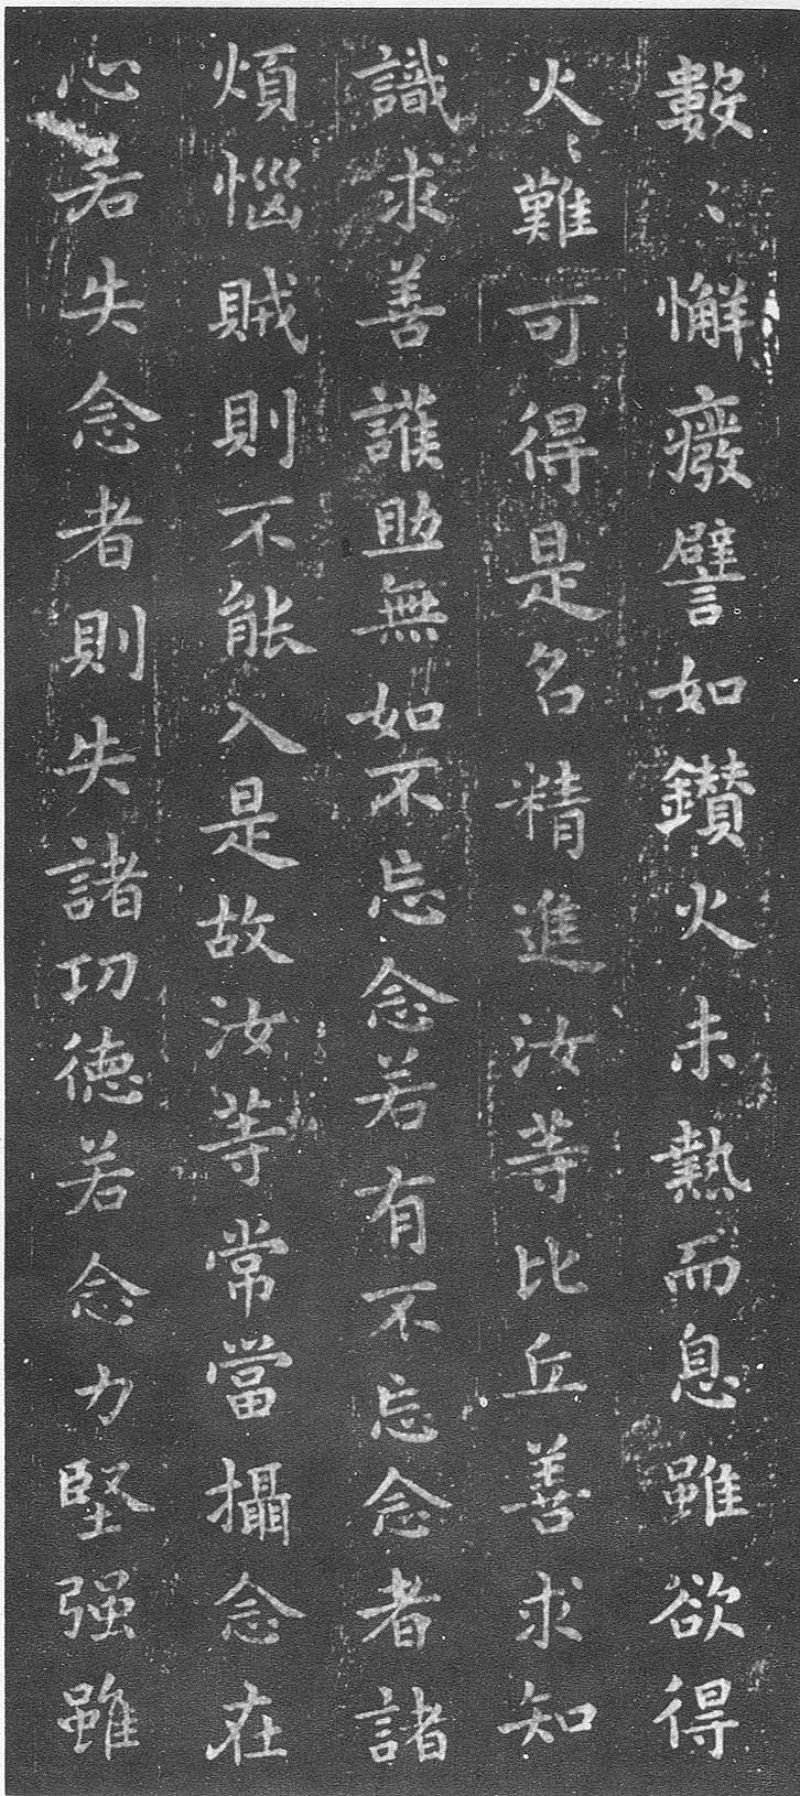 數〻懈癈譬如鑽火未熱而息雖欲得
火〻難可得是名精進汝等比丘善求知
識求善護助無如不忘念若有不忘念者諸
煩惱賊則不能入是故汝等常當攝念在
心若失念者則失諸功德若念力堅强雖